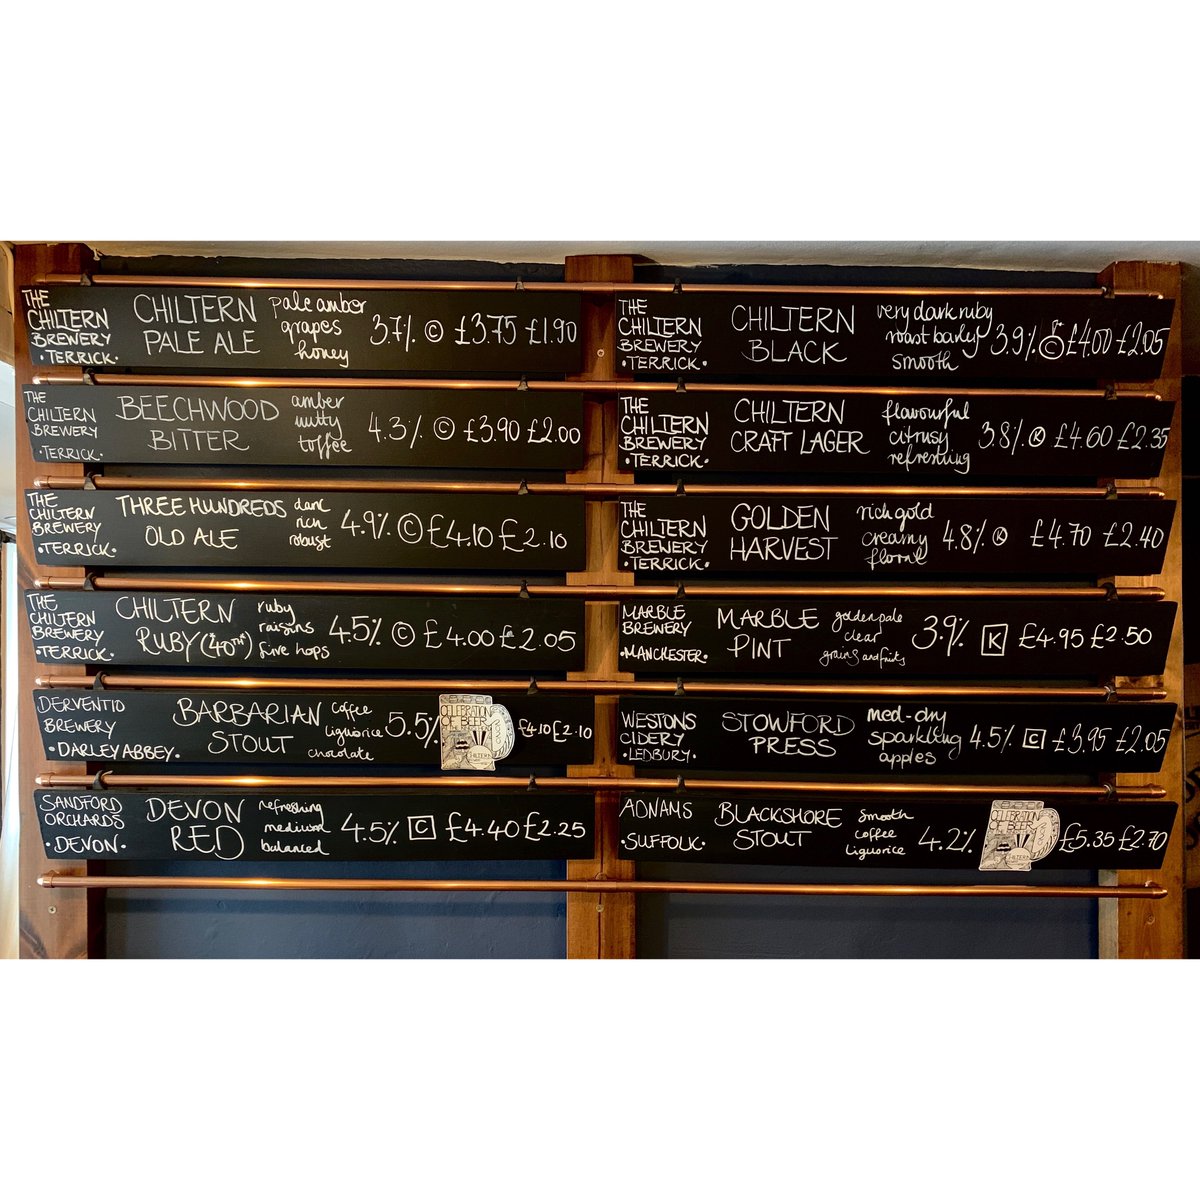 THE
CHILTERN
BREWERY
·TERRICK·
CHILTERN
PALE ALE
pale amber
grapes
honey
3.7% © £3.75 £1.90
THE
CHILTERN
BREWERY
·TERRICK·
BEECHWOOD
BITTER
amber
nutty
toffee
4.3% © £3.90 £2.00
THE
CHILTERN
BREWERY
·TERRICK·
THREE HUNDREDS
OLD ALE
dark
rich
robust
4.9% © £4.10 £2.10
THE
CHILTERN
BREWERY
·TERRICK·
CHILTERN
RUBY (40TH)
ruby
raisins
fine hops
4.5% © £4.00 £2.05
DERVENTIO
BREWERY
·DARLEY ABBEY·
BARBARIAN
STOUT
coffee
liquorice
chocolate
5.5%
CELEBRATION
OF BEER
£4.10 £2.10
SANDFORD
ORCHARDS
·DEVON·
DEVON
RED
refreshing
medium
balanced
4.5% C £4.40 £2.25
THE
CHILTERN
BREWERY
·TERRICK·
CHILTERN
BLACK
very dark ruby
roast barley
smooth
3.9% © £4.00 £2.05
THE
CHILTERN
BREWERY
·TERRICK·
CHILTERN
CRAFT LAGER
flavourful
citrusy
refreshing
3.8% K £4.60 £2.35
THE
CHILTERN
BREWERY
·TERRICK·
GOLDEN
HARVEST
rich gold
creamy
floral
4.8% K £4.70 £2.40
MARBLE
BREWERY
·MANCHESTER·
MARBLE
PINT
golden pale
clear
grains and fruits
3.9% K £4.95 £2.50
WESTONS
CIDERY
·LEDBURY·
STOWFORD
PRESS
med-dry
sparkling
apples
4.5% C £3.95 £2.05
ADNAMS
·SUFFOLK·
BLACKSHORE
STOUT
smooth
coffee
liquorice
4.2%
CELEBRATION
OF BEER
£5.35 £2.70